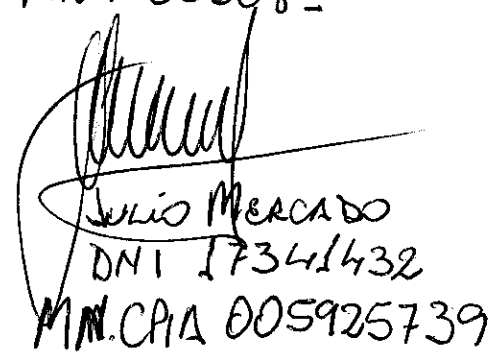 JULIO MERCADO
DNI 17341432
MN.CPIA 005925739